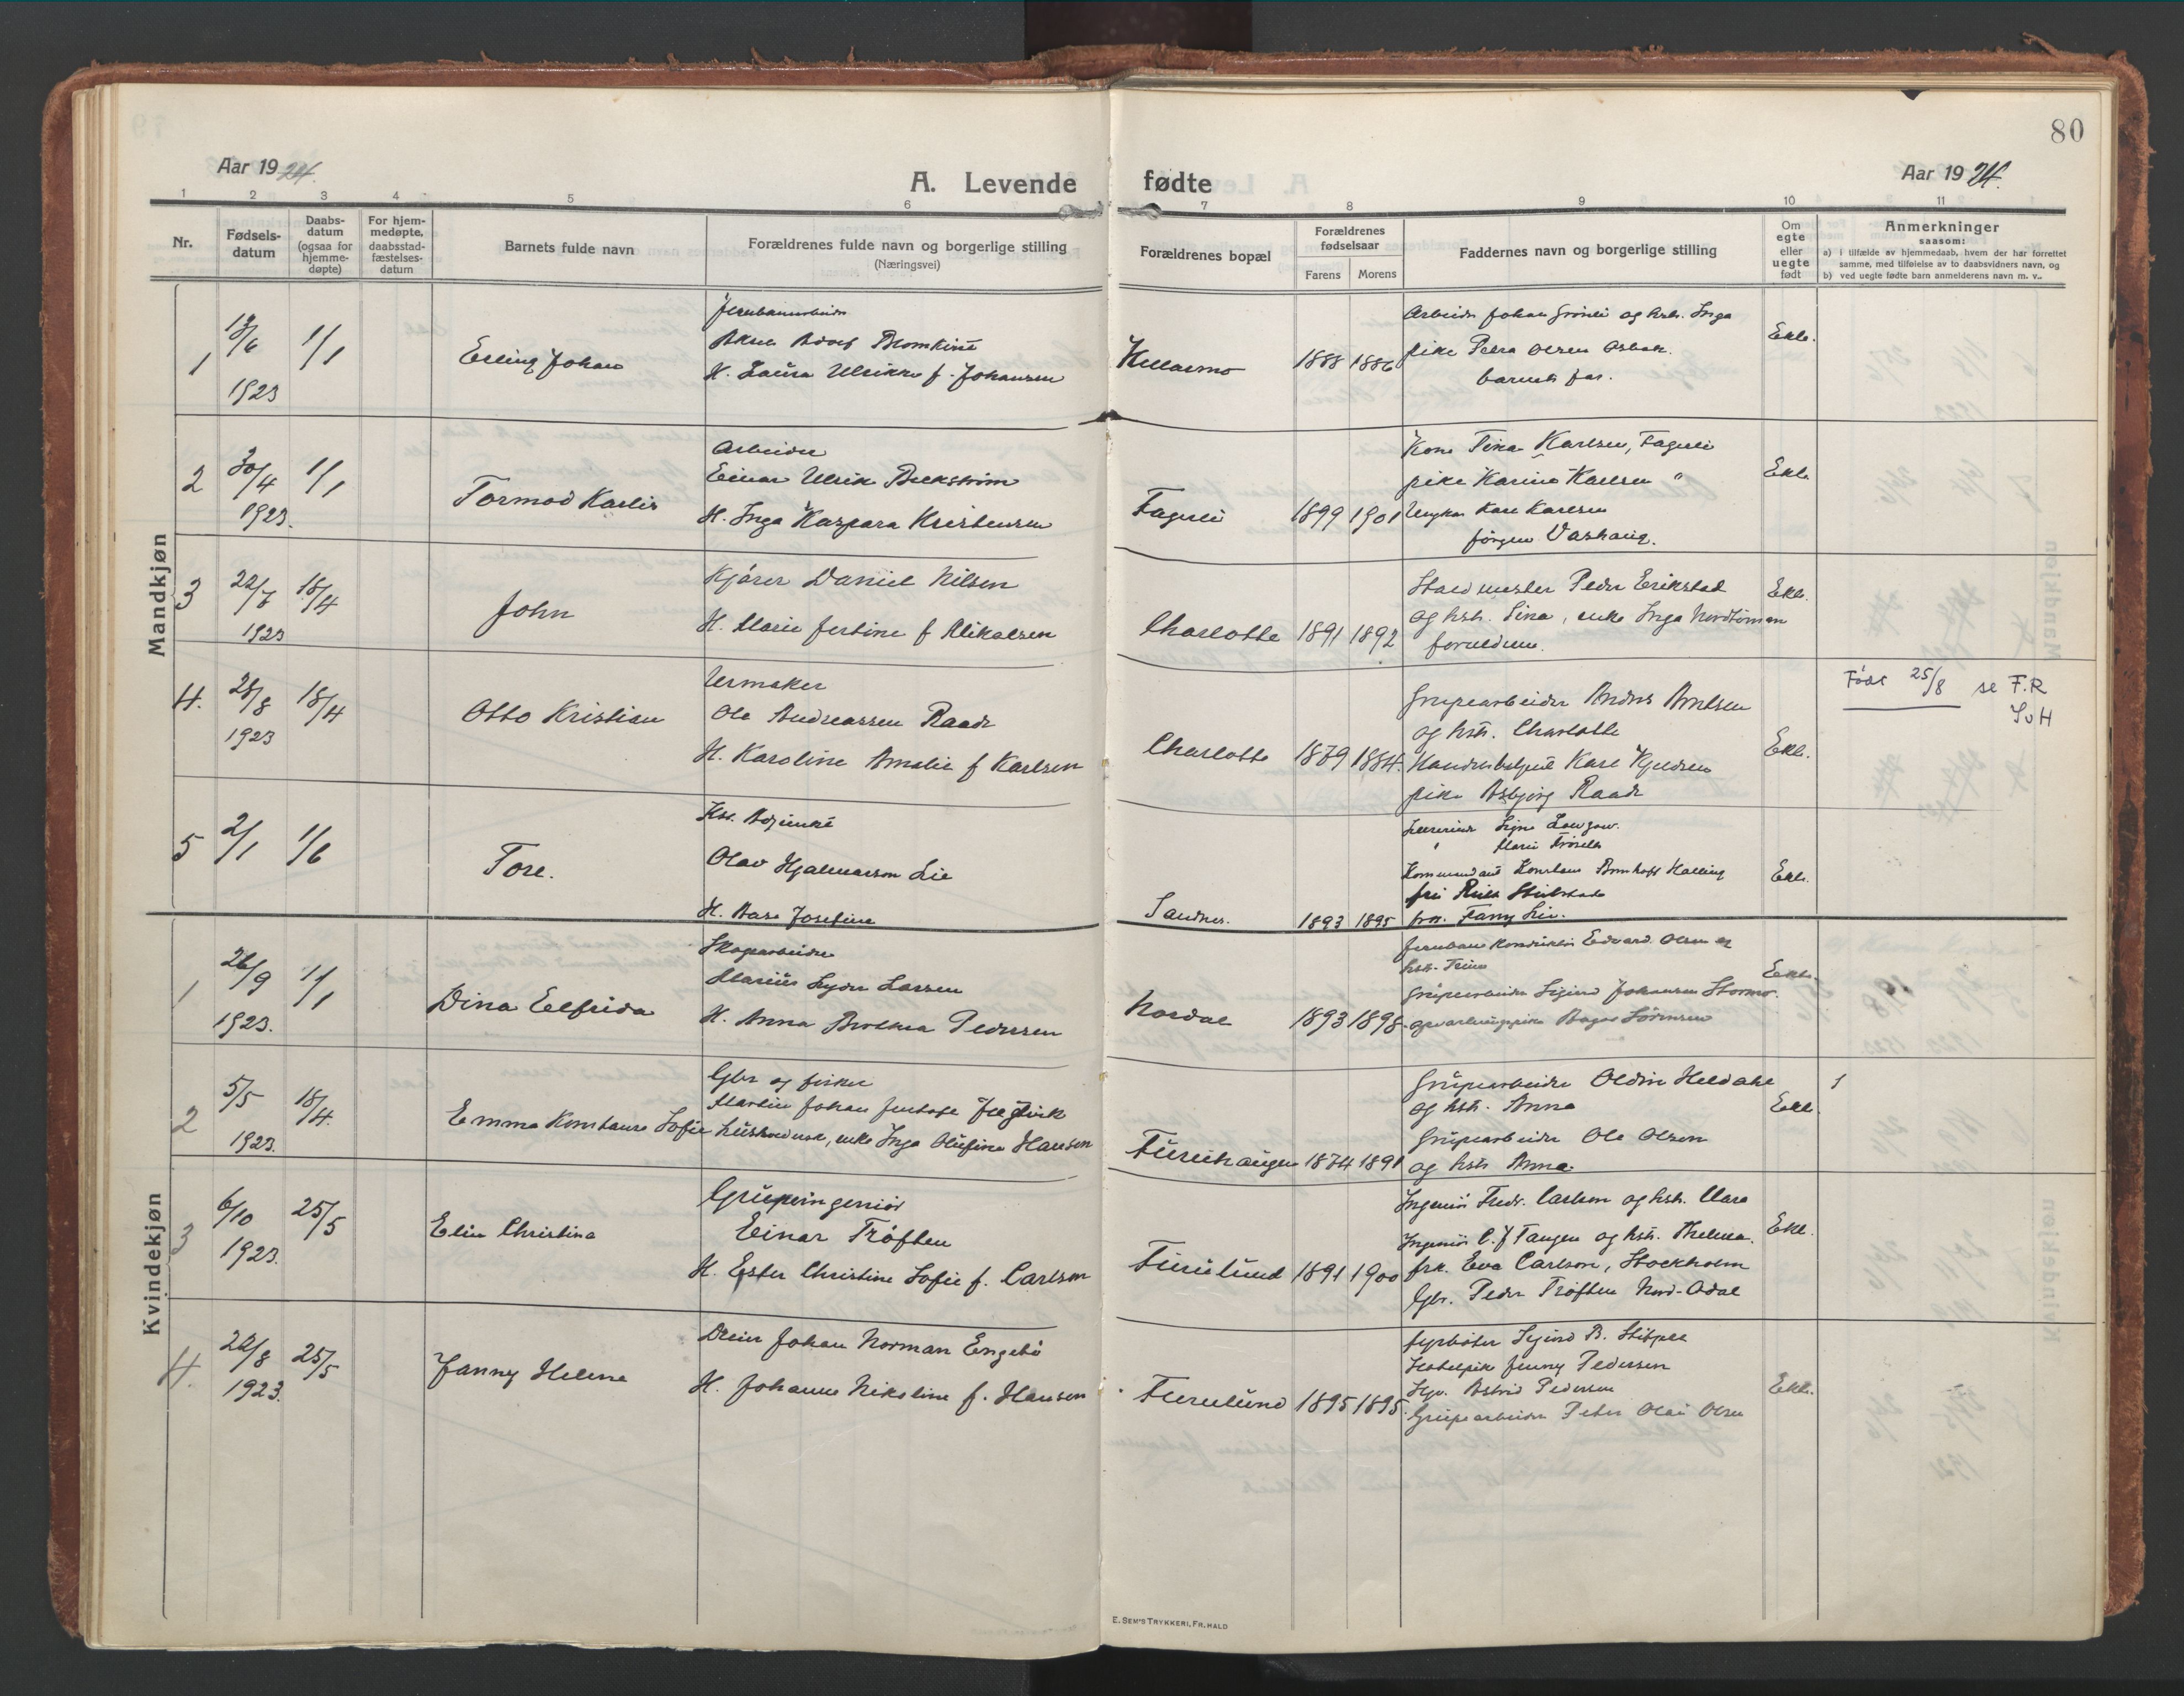 80
Aar 1924.
A. Levende fødte
Aar 1924.
1 2 3 4 5 6 7 8 9 10 11
Nr.
Fødsels-
datum
Daabs-
datum
(ogsaa for
hjemme-
døpte)
For hjem-
medøpte,
daabsstad-
fæstelses-
datum
Barnets fulde navn
Forældrenes fulde navn og borgerlige stilling
(Næringsvei)
Forældrenes bopæl
Forældrenes
fødselsaar
Farens Morens
Faddernes navn og borgerlige stilling
Om
egte
eller
uegte
født
Anmerkninger
saasom:
a) i tilfælde av hjemmedaab, hvem der har forrettet
samme, med tilføielse av to daabsvidners navn, og
b) ved uegte fødte barn anmelderens navn m. v..
Mandkjøn
1
1923
1/1
Erling Johan
H. Laura Ulrikke f. Johansen
1888 1886
Arbeider Johan Grønli og hstr. Inga
pike Petra Olsen
barnets far.
Ekte.
2
30/4
1923.
1/1
Tormod Karlis
Arbeider
Einar Ulrik
H. Inga Kaspara Kristensen
Fagerli
1899 1901
Kone Tina Karlsen, Fagerli
pike Karine Karlsen "
Ungkar Kare Karlsen
Jørgen
Ekte
3
22/7
1923
18/4
John
Kjører Daniel Nilsen
H. Marie Jertine f Mikalsen
Charlotte
1891 1892
Staldmester Peder Erikstad
og hstr. Lina, enke Inga
foreldrene.
Ekte.
4.
28/8
1923
18/4
Otto Kristian
Urmaker
Ole Andreassen Raade
H. Karoline Amalie f Karlsen
Charlotte
1879 1884.
Grupearbeider Anders
og hstr. Charlotte
pike Asbjørg Raade
Ekte.
Født 25/8 se F.R
SvH
5
2/1
1/6
Tore.
Olav Hjalmarson Lie
H. Aase Josefine
Sandnes.
1893 1895
Signe
Marie
frk. Fanny Lie.
Ekte.
Kvindekjøn
1
26/9
1923.
1/1
Dina Elfrida
Skogarbeider
Marius Larsen
H. Anna Pedersen
Nordal
1893 1898.
Jernbane Konduktør Edvard Olsen og
hstr.
Grupearbeider Sigurd Johansen Stormo.
Sørensen
Ekte.
2
5/5
1923.
18/4.
Emma Konstanse Sofie
Gbr og fisker
Martin Johan
enke Inga Olufine Hansen
Furuhaugen
1874 1891
Grupearbeider Oldin
og hstr. Anna
Grupearbeider Ole Olsen
og hstr Anna.
Ekte.
3
6/10
1923.
25/5
Elin Christina
Grupeingeniør
Einar Trøften
H. Ester Christine Sofie f. Carlson
Furulund
1891 1900
Ingeniør Fredr. Carlson og hstr. Clara
Ingeniør C. J Tangen og hstr. Thelma.
frk. Eva Carlson, Stockholm
Gbr. Peder Trøften Nord-Odal
Ekte.
4.
22/8
1923.
25/5
Fanny Helene
Dreier Johan Norman Engebø
H. Johanne Nikoline f. Hansen
Furulund
1895 1895.
Fyrbøter Sigurd B.
Hotelpike Jenny Pedersen
Astrid Pedersen
Grupearbeider Peter Olai Olsen
Ekte.
E. SEM'S TRYKKERI, FR. HALD